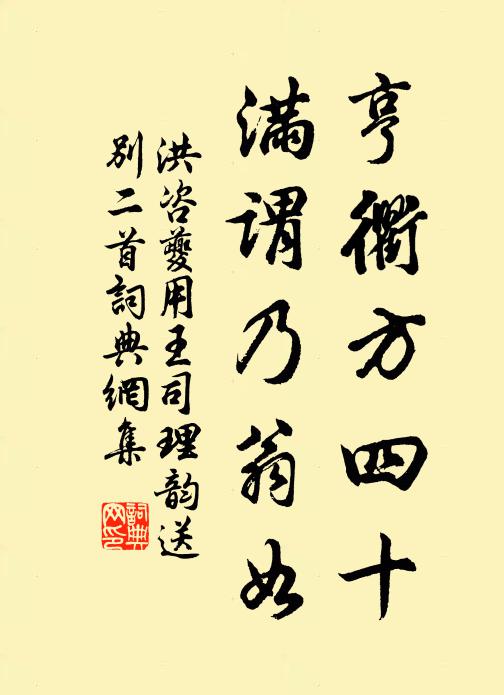 亨衢方四十
满谓乃翁如
洪咨夔用王司理韵送
别二首詞典網集
詞典
网印